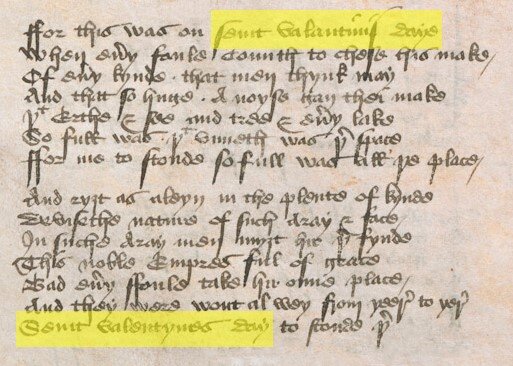 ffor this was on seint Valantinis daye
When eu'y foule Comith to chese his make /
Of eu'y kynde · that men thynk may
And that so huge · A noyse gan thei make
þt Erthe & See and tree & eu'y lake
So full was · þt vnneth was þ' space
ffor me to stonde so full was all þe place /
And ryȝt as aleyn in the pleynte of kynde
Devisethe nature of such aray & face
In suche Aray men myȝt hir þ' fynde
This noble Empres ful of grace
Bad eu'y ffoule take hir owne place /
And they were wont al wey from yeer' to yeer'
Seint Valentynes day to stonde þ'